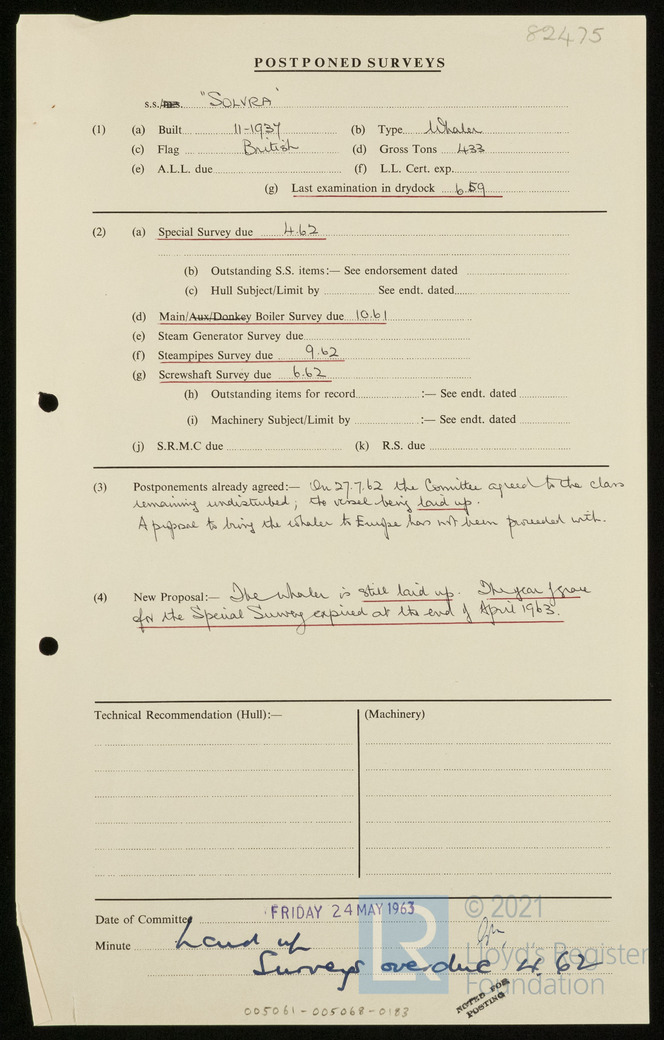 82475
POSTPONED SURVEYS
s.s./m.s. "SOLVRA"
(1) (a) Built 11-1937 (b) Type Whaler
(c) Flag British (d) Gross Tons 433
(e) A.L.L. due (f) L.L. Cert. exp.
(g) Last examination in drydock 6.59
(2) (a) Special Survey due 4.62
(b) Outstanding S.S. items:— See endorsement dated
(c) Hull Subject/Limit by See endt. dated
(d) Main/Aux/Donkey Boiler Survey due 10.61
(e) Steam Generator Survey due
(f) Steampipes Survey due 9.62
(g) Screwshaft Survey due 6.62
(h) Outstanding items for record :— See endt. dated
(i) Machinery Subject/Limit by :— See endt. dated
(j) S.R.M.C due (k) R.S. due
(3) Postponements already agreed:— On 27.7.62 the Committee agreed to the class
remaining undisturbed; the vessel being laid up.
A proposal to bring the whaler to Europe has not been proceeded with.
(4) New Proposal:— The whaler is still laid up. The year of grace
for the Special Survey expired at the end of April 1963.
Technical Recommendation (Hull):— (Machinery)
Date of Committee FRIDAY 24 MAY 1963
Minute Laid up
Surveys overdue 4.62
NOTED FOR
POSTING
LR
© 2021
Lloyd's Register
Foundation
005061-005068-0183